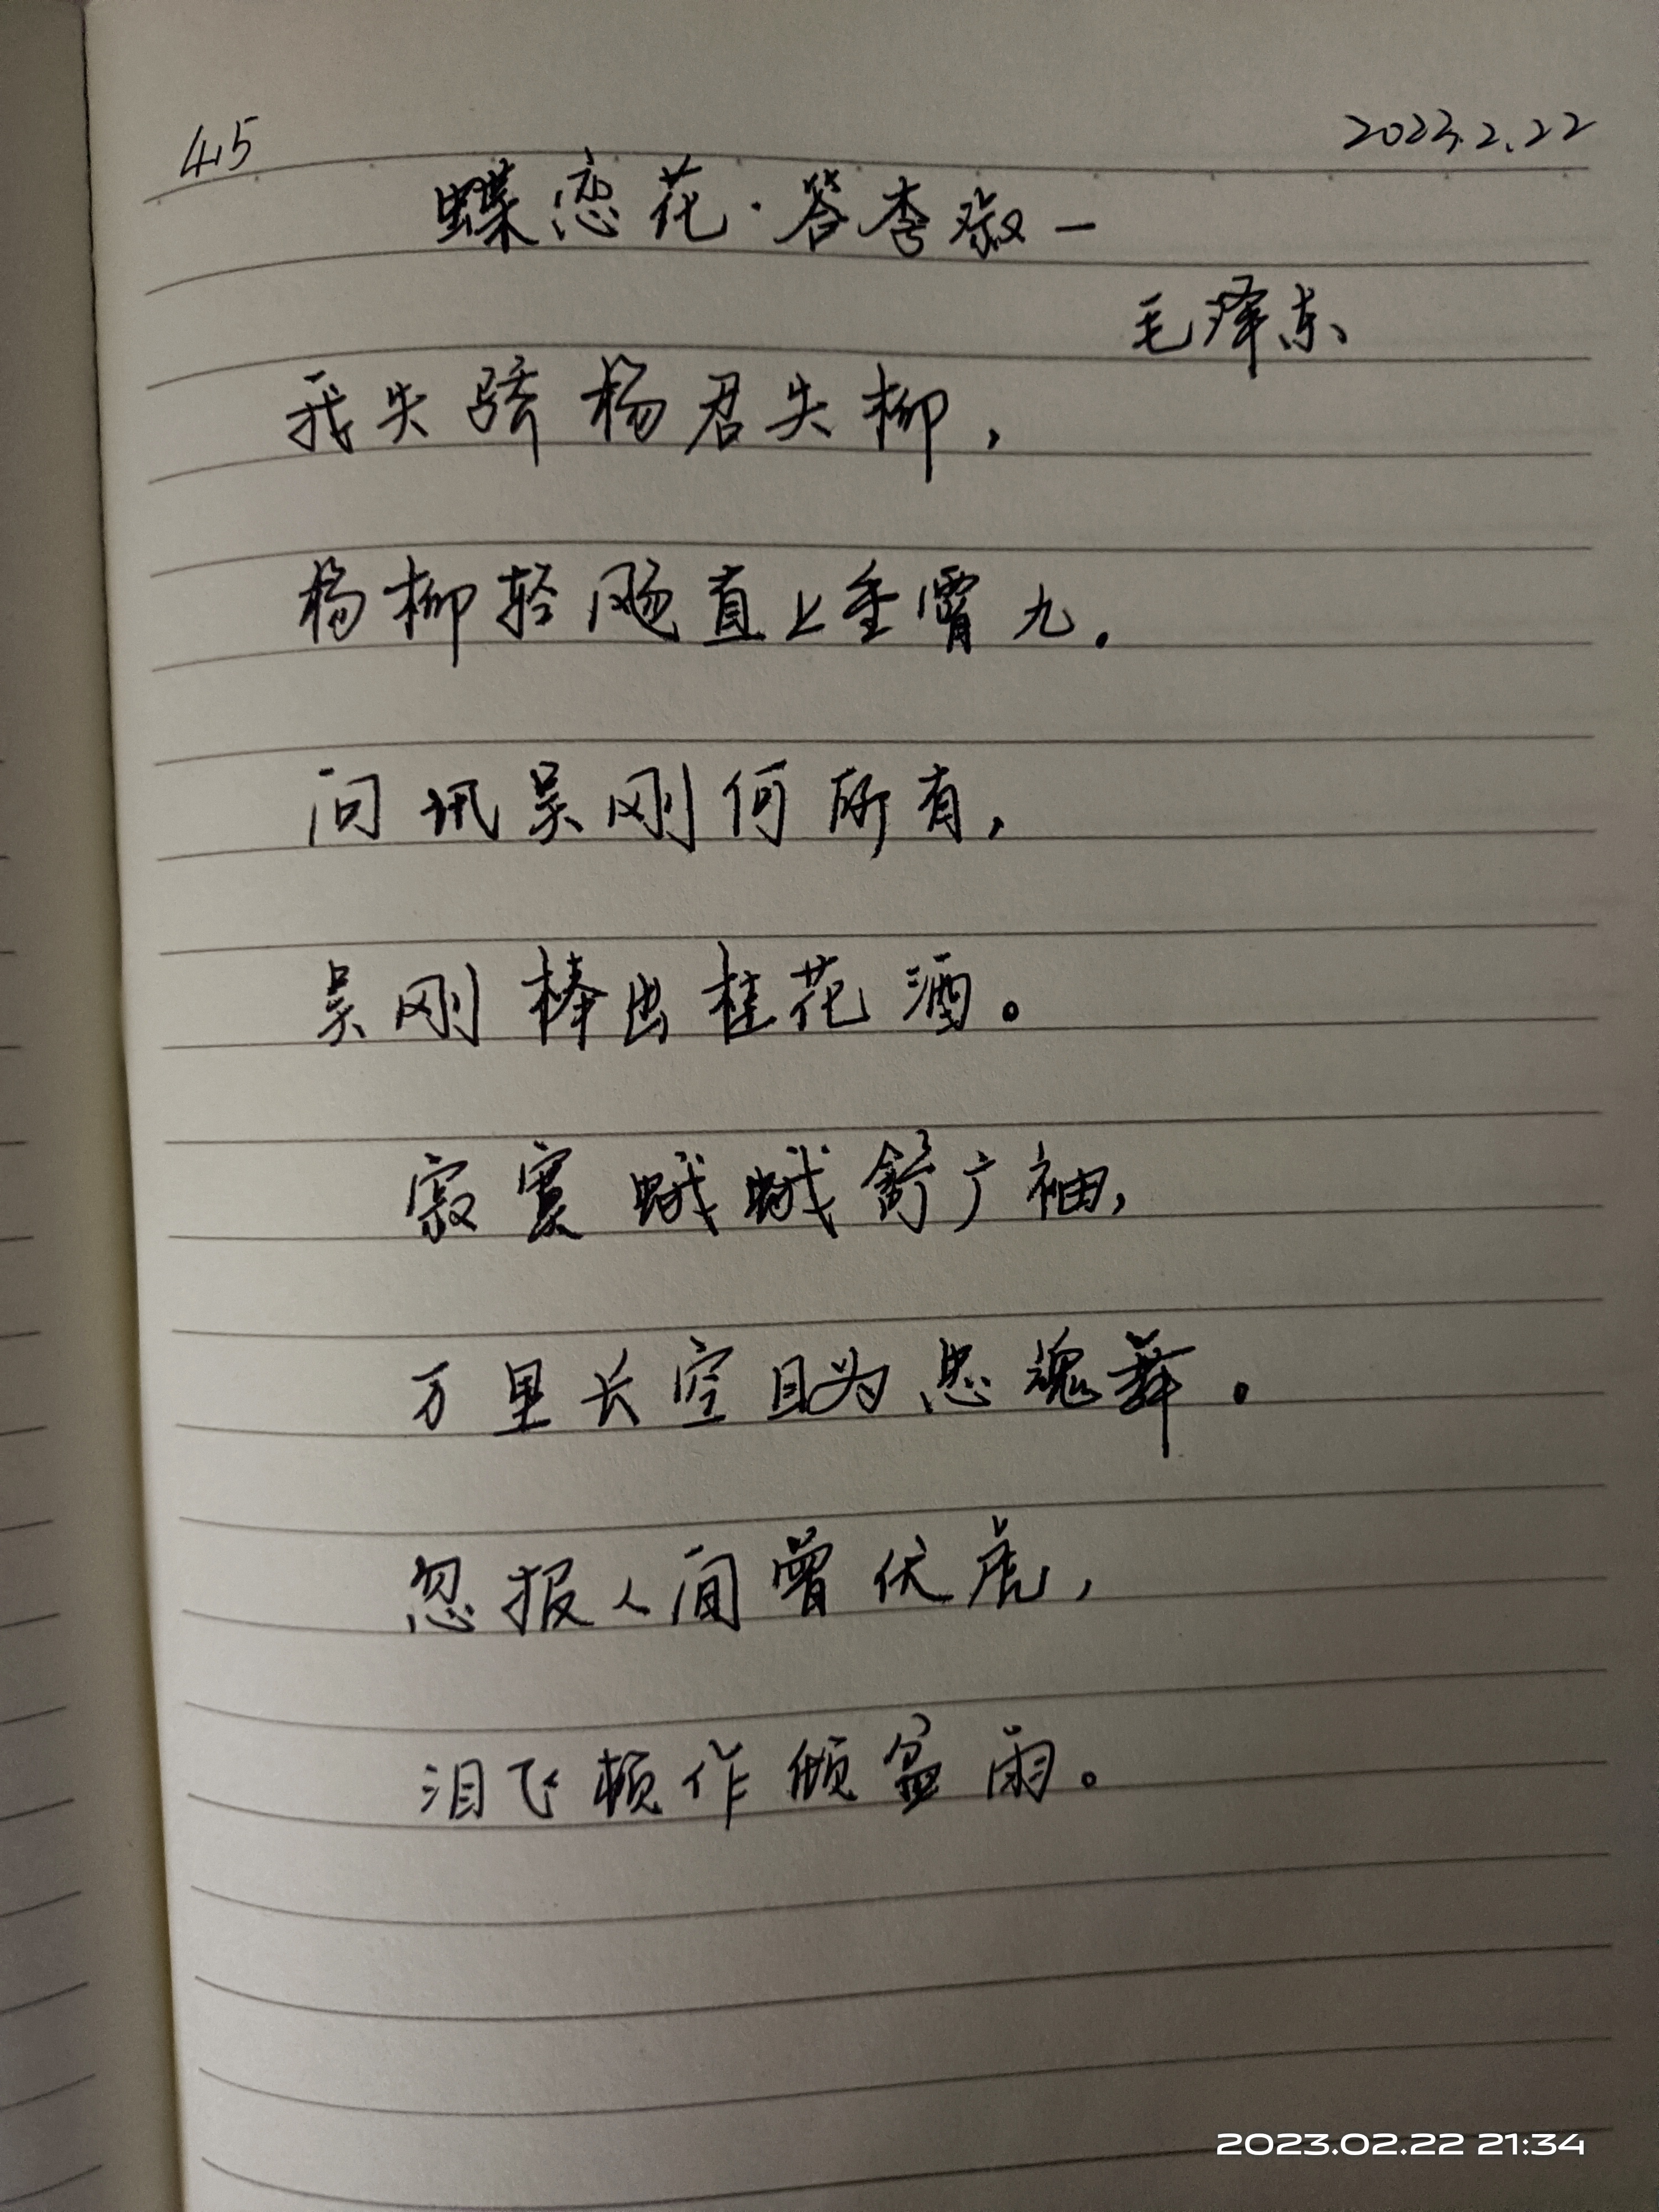 415
2023.2.22
蝶恋花·答李淑一
毛泽东
我失骄杨君失柳,
杨柳轻飏直上重霄九。
问讯吴刚何所有,
吴刚棒出桂花酒。
寂寞蛾蛾舒广袖,
万里长空且为忠魂舞。
忽报人间曾伏虎,
泪飞顿作倾盆雨。
2023.02.22 21:34